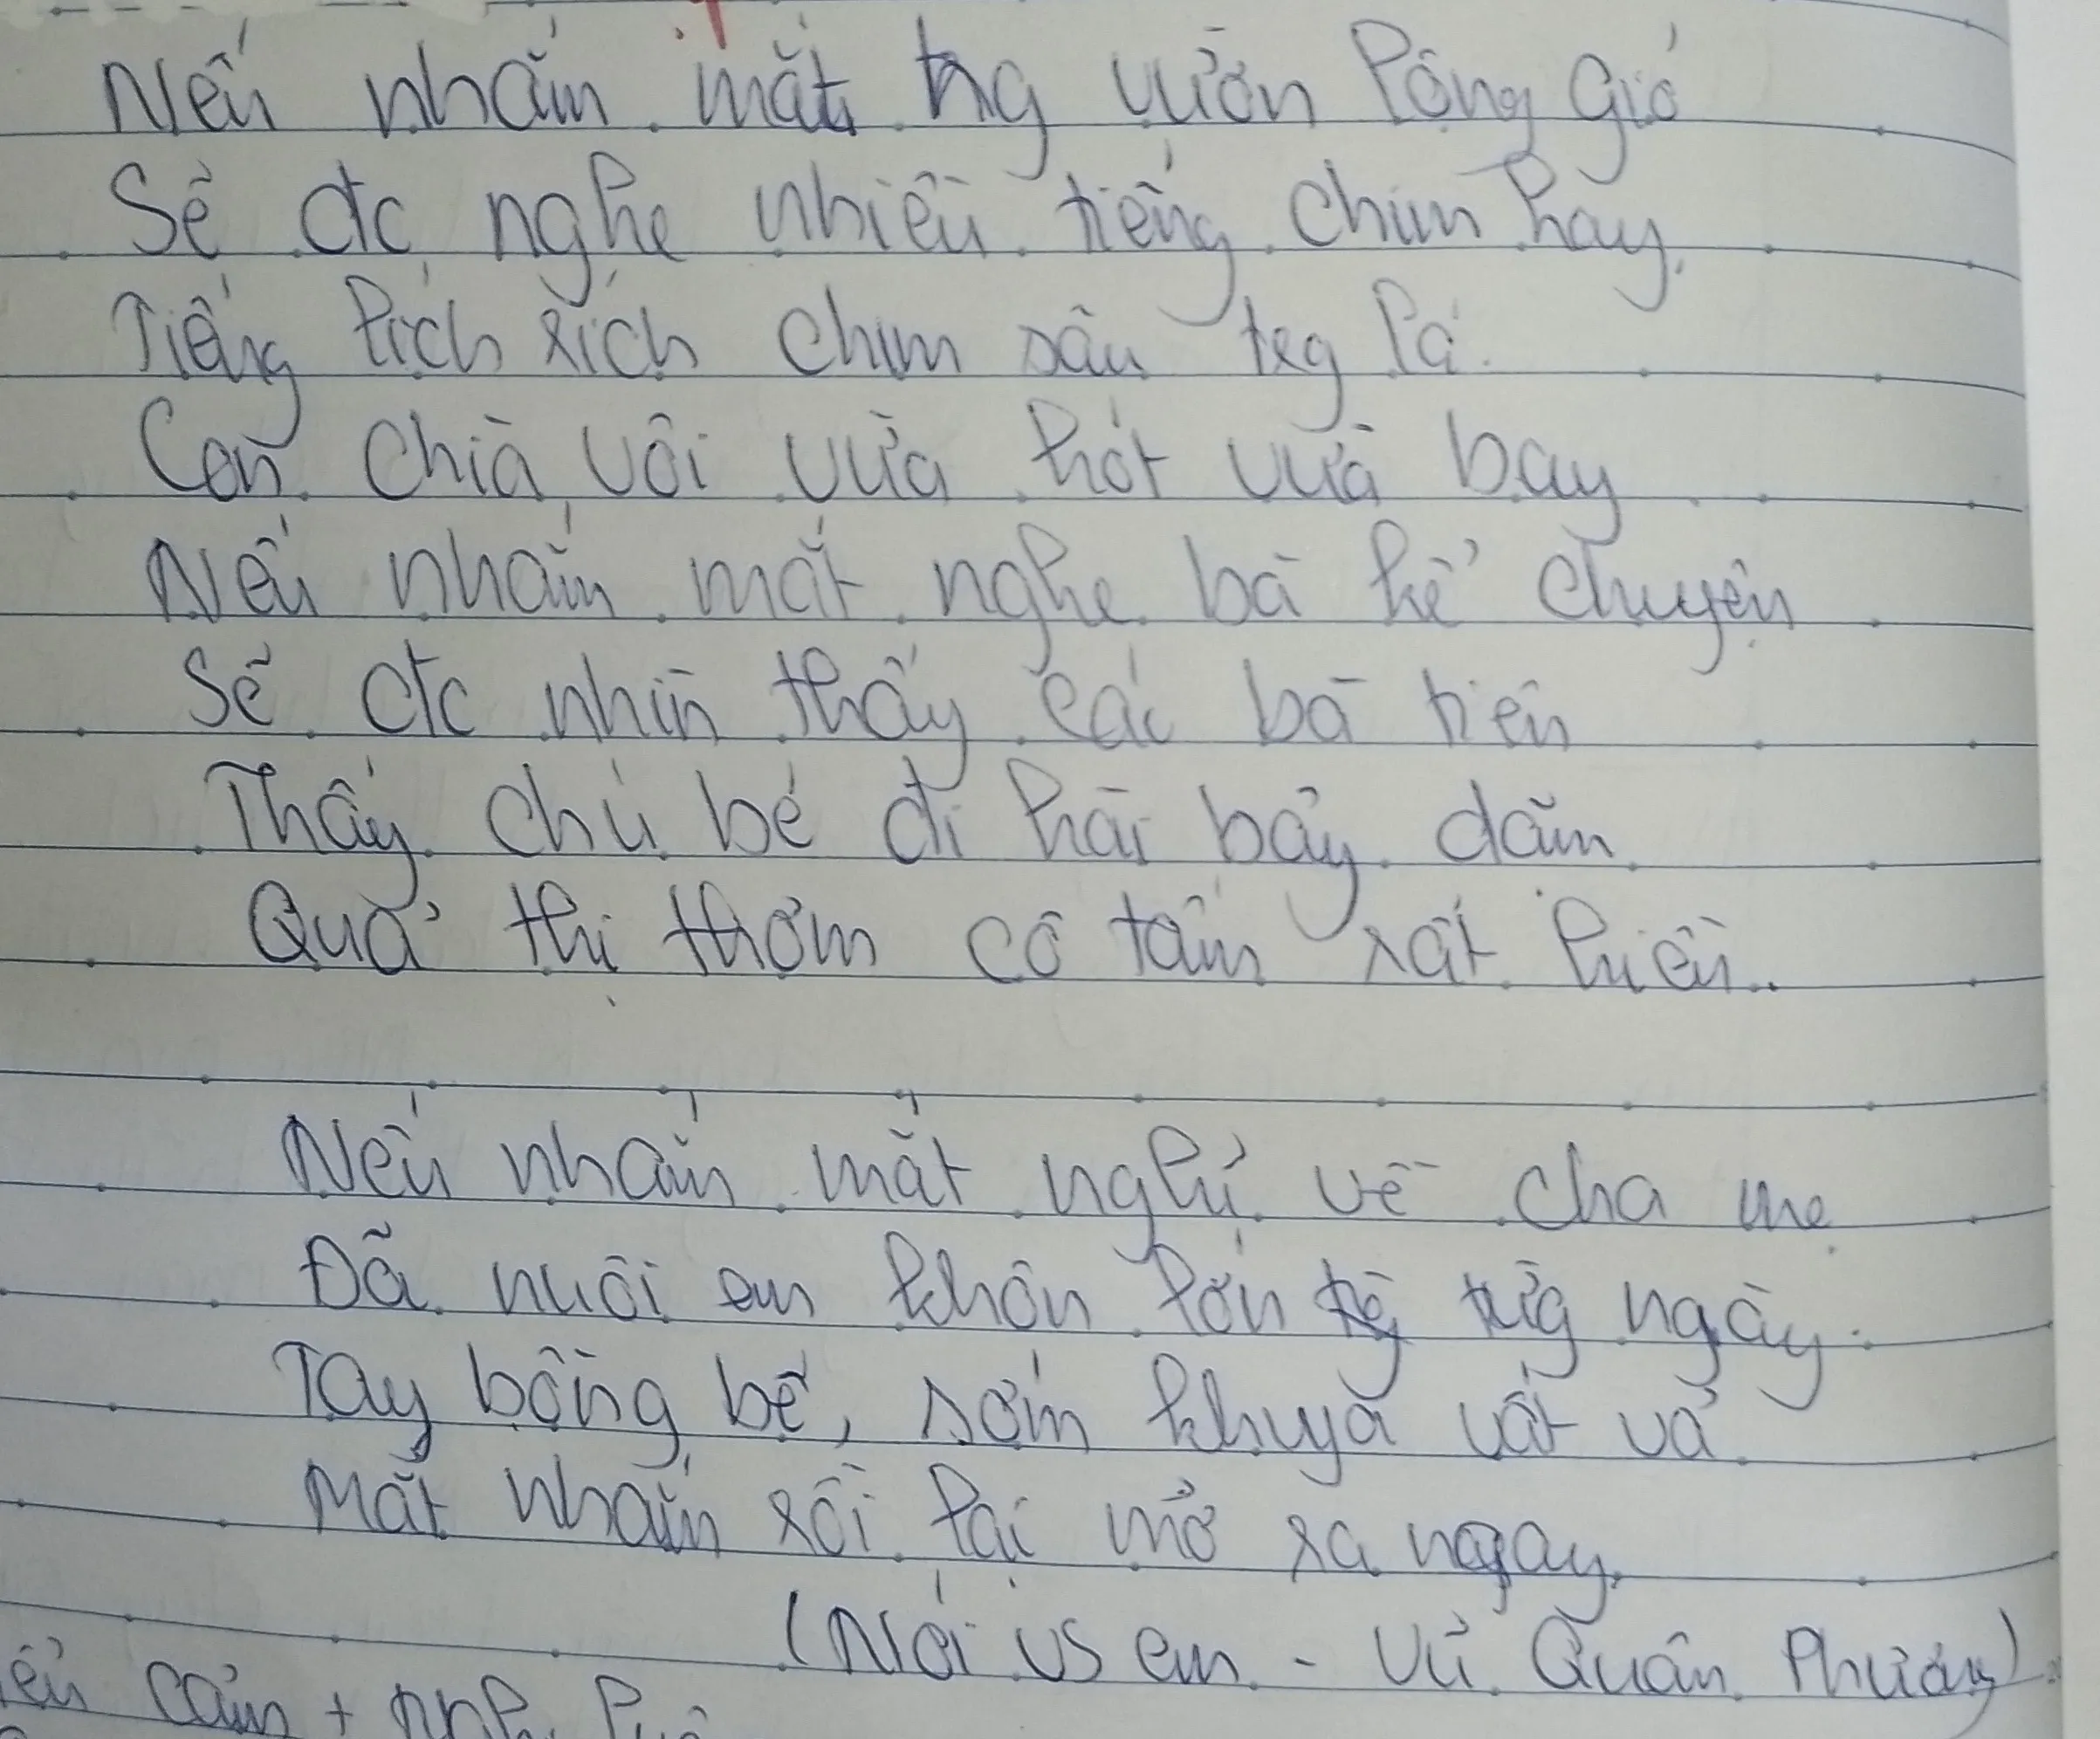 Nếu nhắm mắt tng vườn lộng gió
Sẽ đc nghe nhiều tiếng chim hay
Tiếng lích rích chim sâu trg lá
Con chìa vôi vừa hót vừa bay
Nếu nhắm mắt nghe bà kể chuyện
Sẽ đc nhìn thấy các bà tiên
Thấy chú bé đi hài bảy dặm
Quả thị thơm cô tấm rất hiền.
Nếu nhắm mắt nghĩ về cha mẹ
Đã nuôi em khôn lớn từg ngày.
Tay bồng bế, sớm khuya vất vả
Mắt nhắm rồi lại mở ra ngay.
(Nói vs em - Vũ Quân Phương)
cảm +